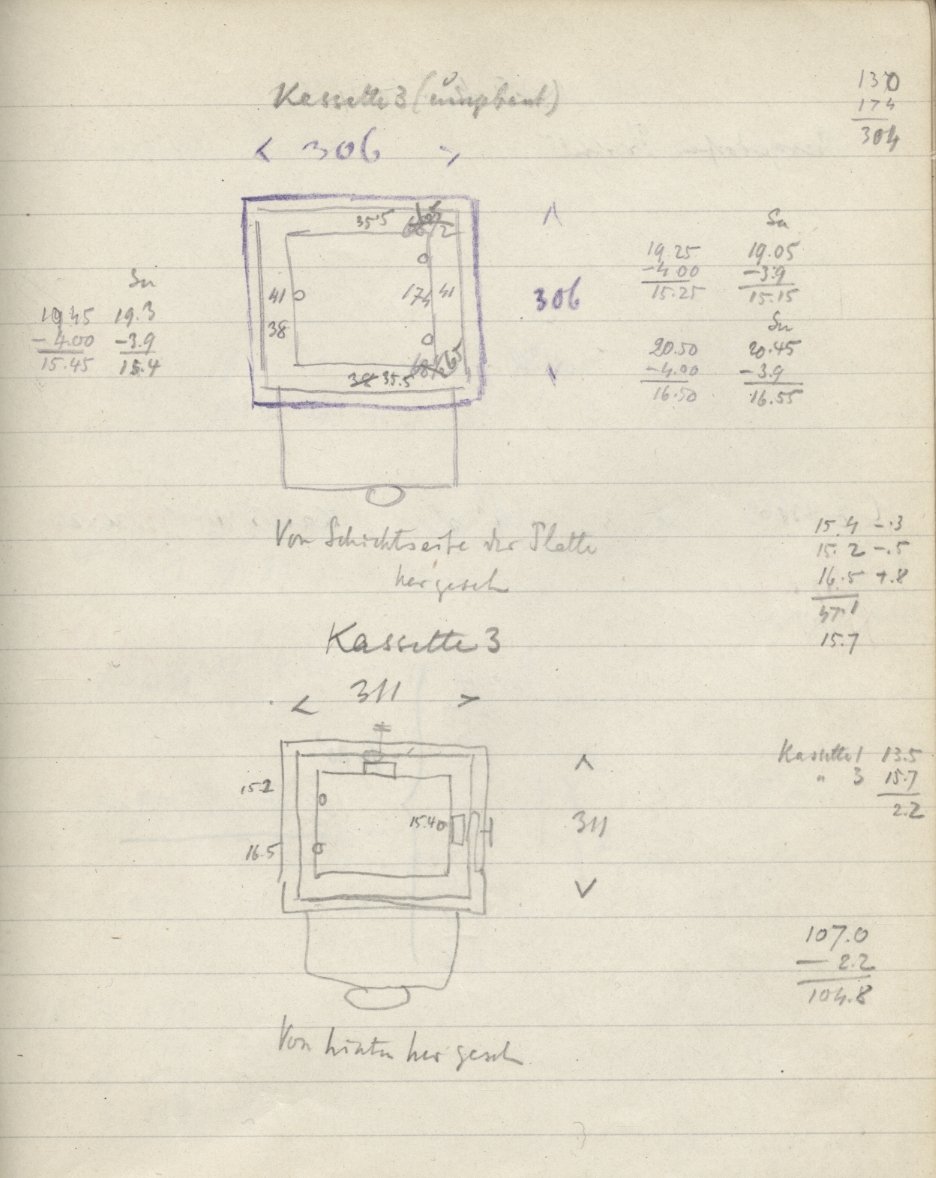 Kassette 3 (umgebaut)
130
174
304
< 306 >
35.5
Su
19.25 19.05
-4.00 -3.9
15.25 15.15
Su
20.50 20.45
-4.00 -3.9
16.50 16.55
Su
19.45 19.3
-4.00 -3.9
15.45 15.4
41
174 41
38
306
38 35.5
Von Schichtseite der Platte
her gesch
15.4 -.3
15.2 -.5
16.5 +.8
47.1
15.7
Kassette 3
< 311 >
15.2
15.40
16.5
311
Kassette 1 13.5
" 3 15.7
2.2
107.0
- 2.2
104.8
Von hinten her gesch